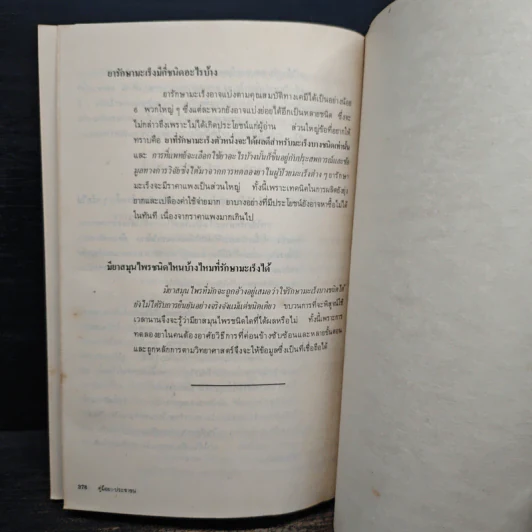 ยารักษามะเร็งมีกี่ชนิดอะไรบ้าง
ยารักษามะเร็งอาจแบ่งตามคุณสมบัติทางเคมีได้เป็นอย่างน้อย
๕ พวกใหญ่ ๆ ซึ่งแต่ละพวกยังอาจแบ่งย่อยได้อีกเป็นหลายชนิด ซึ่งจะ
ไม่กล่าวถึงเพราะไม่ได้เกิดประโยชน์แก่ผู้อ่าน ส่วนใหญ่ข้อที่อยากให้
ทราบคือ ยาที่รักษามะเร็งตัวหนึ่งจะได้ผลดีสำหรับมะเร็งบางชนิดเท่านั้น
และ การที่แพทย์จะเลือกใช้ยาอะไรบ้างนั้นก็ขึ้นอยู่กับประสบการณ์และข้อ
มูลทางการวิจัยซึ่งได้มาจากการทดลองยาในผู้ป่วยมะเร็งต่าง ๆ ยารักษา
มะเร็งจะมีราคาแพงเป็นส่วนใหญ่ ทั้งนี้เพราะเทคนิคในการผลิตยังยุ่ง
ยากและเปลืองค่าใช้จ่ายมาก ยาบางอย่างที่มีประโยชน์ยังอาจหาซื้อไม่ได้
ในทันที เนื่องจากราคาแพงมากเกินไป
มียาสมุนไพรชนิดไหนบ้างไหมที่รักษามะเร็งได้
มียาสมุนไพรที่มักจะถูกอ้างอยู่เสมอว่าใช้รักษามะเร็งบางชนิดได้
ยังไม่ได้รับการยืนยันอย่างจริงจังแม้แต่ชนิดเดียว ขบวนการที่จะพิสูจน์ใช้
เวลานานจึงจะรู้ว่ามียาสมุนไพรชนิดใดที่ได้ผลหรือไม่ ทั้งนี้เพราะการ
ทดลองยาในคนต้องอาศัยวิธีการที่ค่อนข้างซับซ้อนและหลายขั้นตอน
และถูกหลักการตามวิทยาศาสตร์จึงจะให้ข้อมูลซึ่งเป็นที่เชื่อถือได้